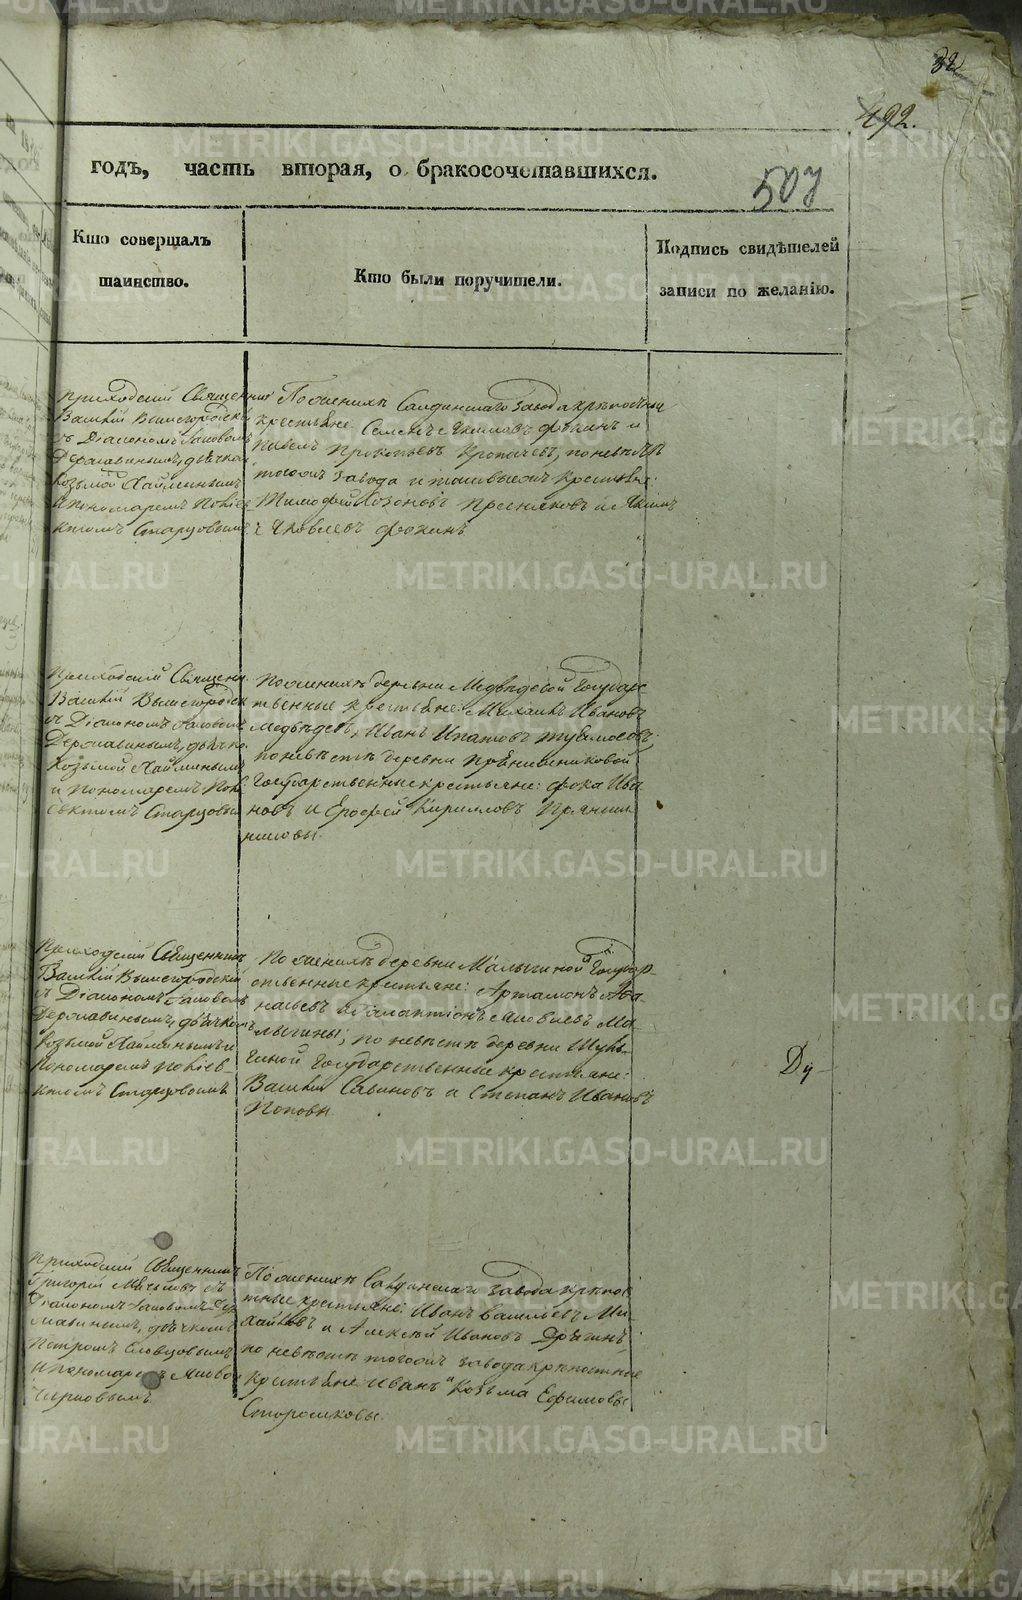 32
492.
годъ, часть вторая, о бракосочетавшихся.
507
Кто совершалъ
таинство.
Кто были поручители.
Подпись свидѣтелей
записи по желанію.
Приходскій Священникъ
Василій Вышегородскій
съ Діакономъ Іаковомъ
Державинымъ, дьячкомъ
Козьмой Хайминымъ
и пономаремъ
Старцовымъ
По женихѣ Салдинскаго завода крѣпостные
крестьяне Семенъ Якимовъ Фокинъ и
Павелъ Прокопьевъ Кропачевъ, по невѣстѣ
тогожъ завода и таковыежъ крестьяне:
Тимофей Пресняковъ и Якимъ
Яковлевъ Фокинъ
Приходскій Священникъ
Василій Вышегородскій
съ Діакономъ Іаковомъ
Державинымъ, дьячкомъ
Козьмой Хайминымъ
и Пономаремъ
Старцовымъ
По женихѣ деревни Медвѣдевой Государ
ственные крестьяне: Михаилъ Ивановъ
Медвѣдевъ, Иванъ Ипатовъ
по невѣстѣ деревни Прянишниковой
Государственные крестьяне: Фока Ива
новъ и Ерофей Кирилловъ Пряниш
никовы.
Приходскій Священникъ
Василій Вышегородскій
съ Діакономъ Іаковомъ
Державинымъ, дьячкомъ
Козьмой Хайминымъ и
Пономаремъ
Старцовымъ
По женихѣ деревни Малыгиной Государ
ственные крестьяне: Артамонъ Афа
насьевъ и Галактіонъ Яковлевъ Ма
лыгины; по невѣстѣ деревни
Государственные крестьяне:
Василій Савиновъ и Степанъ Ивановъ
Поповы
Приходскій Священникъ
Григорій съ
Діакономъ Іаковомъ Дер
жавинымъ, дьячкомъ
Петромъ Словцовымъ
и пономаремъ
По женихѣ Салдинскаго завода крѣпос
тные крестьяне: Иванъ Васильевъ Ми
хайловъ и Алексѣй Ивановъ
по невѣстѣ тогожъ завода крѣпостные
крестьяне Иванъ и Козьма Ефимовы
METRIKI.GASO-URAL.RU